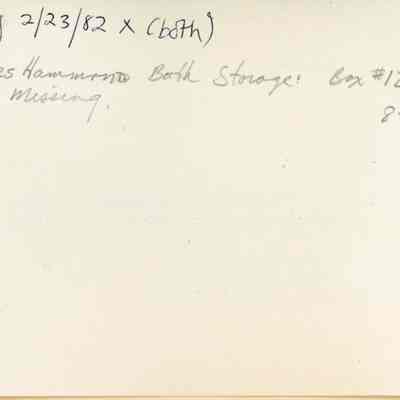 ) 2/23/82 X (both)
es Hammond Both Storage: Box #12
Missing.
8-